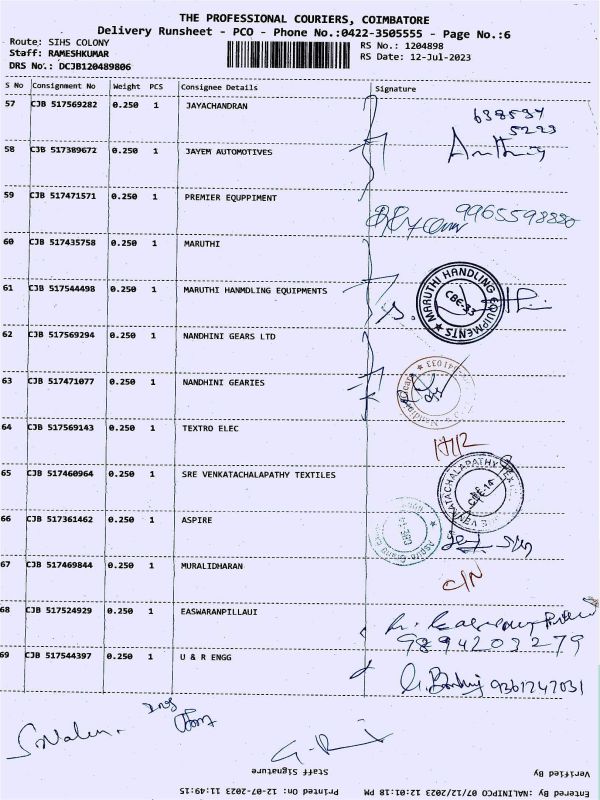 THE PROFESSIONAL COURIERS, COIMBATORE
Delivery Runsheet - PCO - Phone No.:0422-3505555 - Page No.:6
Route: SIHS COLONY
Staff: RAMESHKUMAR
DRS No.: DCJB120489806
RS No.: 1204898
RS Date: 12-Jul-2023
S No Consignment No Weight PCS Consignee Details Signature
57 CJB 517569282 0.250 1 JAYACHANDRAN
638534
5223
58 CJB 517389672 0.250 1 JAYEM AUTOMOTIVES
59 CJB 517471571 0.250 1 PREMIER EQUPPIMENT
9965598880
60 CJB 517435758 0.250 1 MARUTHI
61 CJB 517544498 0.250 1 MARUTHI HANMDLING EQUIPMENTS
★ MARUTHI HANDLING EQUIPMENTS
CBE-33
62 CJB 517569294 0.250 1 NANDHINI GEARS LTD
63 CJB 517471077 0.250 1 NANDHINI GEARIES
64 CJB 517569143 0.250 1 TEXTRO ELEC
65 CJB 517460964 0.250 1 SRE VENKATACHALAPATHY TEXTILES
CBE-14
66 CJB 517361462 0.250 1 ASPIRE
67 CJB 517469844 0.250 1 MURALIDHARAN
C/N
68 CJB 517524929 0.250 1 EASWARANPILLAUI
9894203279
69 CJB 517544397 0.250 1 U & R ENGG
9361247031
Staff Signature
Verified By
Printed On: 12-07-2023 11:49:15
Entered By :NALINIPCO 07/12/2023 12:01:18 PM